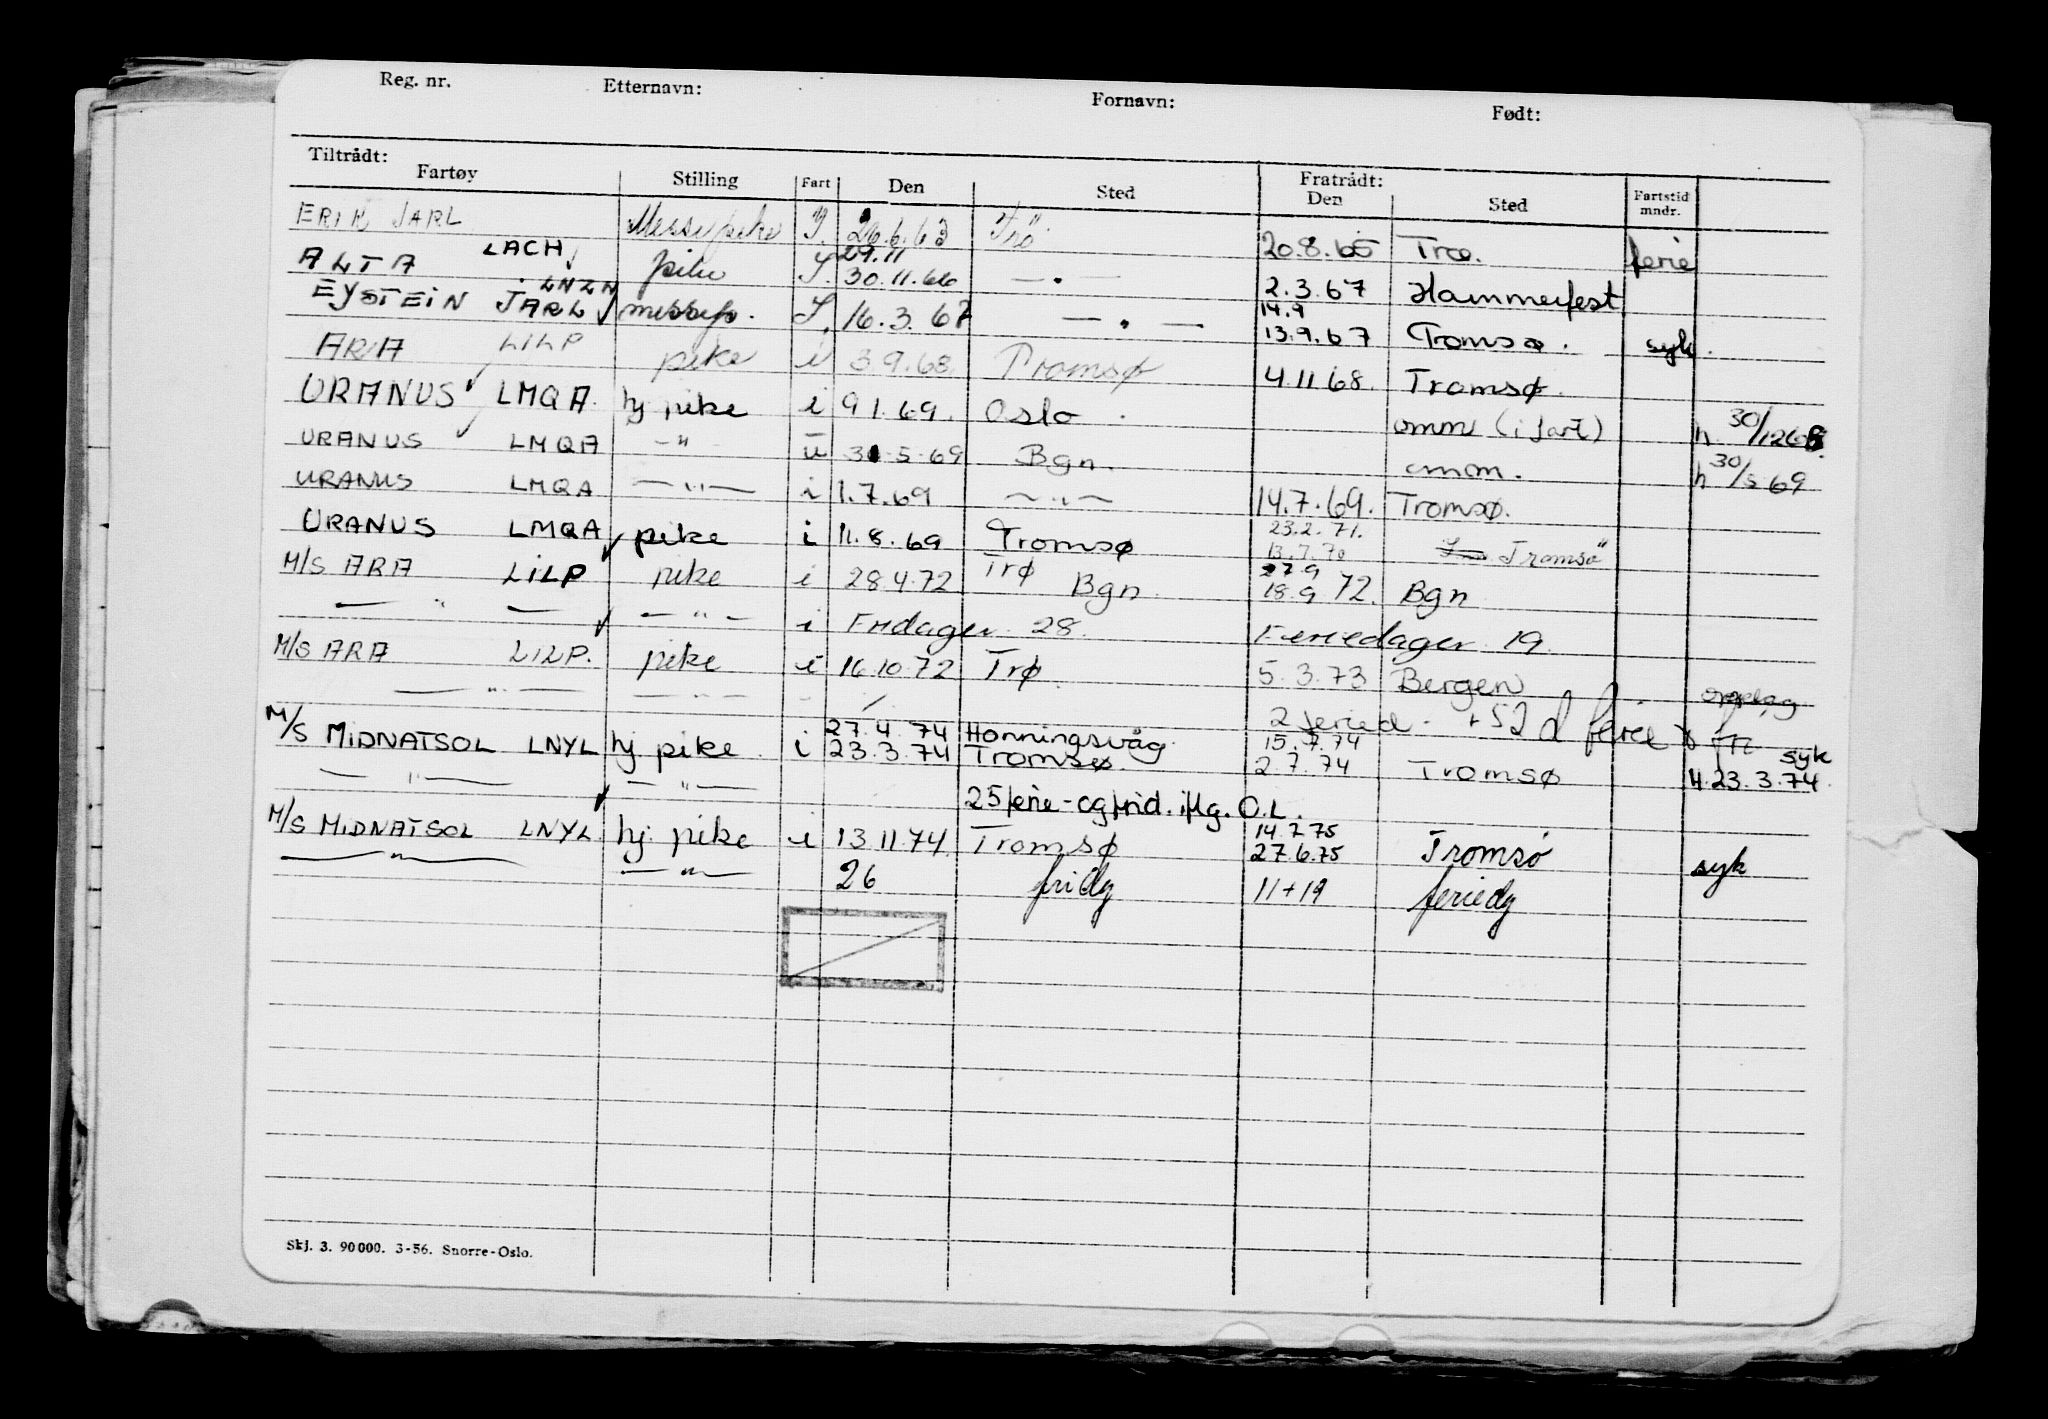 Reg. nr. Etternavn: Fornavn: Født:
Tiltrådt: Fratrådt:
Fartøy Stilling Fart Den Sted Den Sted Fartstid mndr.
ERIK JARL Messepike 26.6.63 Trø 20.8.65 Trø. ferie
29.11
ALTA LACH pike 30.11.66 — " 2.3.67 Hammerfest
LNZN 14.9
EYSTEIN JARL messep. 16.3.67 — " — 13.9.67 Tromsø. syk.
ARA LILP pike i 3.9.68 Tromsø 4.11.68. Tromsø.
URANUS LMQA. hj pike i 9.1.69. Oslo omm (i fart) h 30/12 68
URANUS LMQA — " — u 31.5.69 Bgn. omm. h 30/5 69
URANUS LMQA — " — i 1.7.69 — " — 14.7.69. Tromsø.
23.2.71.
URANUS LMQA pike i 11.8.69 Tromsø 13.7.70 Tromsø
27.9
M/S ARA LILP pike i 28.4.72 Trø Bgn. 18.9 72. Bgn
— " — — " — i Fridager 28. Feriedager 19.
M/S ARA LILP. pike i 16.10.72 Trø 5.3.73 Bergen opplag
— " — — " — 2 feried. + 52 d ferie
27.4.74 Honningsvåg 15.7.74 syk
M/S MIDNATSOL LNYL hj pike i 23.3.74 Tromsø 2.7.74 Tromsø H.23.3.74.
— " — — " — 25 ferie- og frid. iflg. O.L.
14.7.75
M/S MIDNATSOL LNYL. hj. pike i 13.11.74. Tromsø 27.6.75 Tromsø syk
— " — — " — 26 fridg 11+19 feriedg
Skj. 3. 90000. 3-56. Snorre-Oslo.